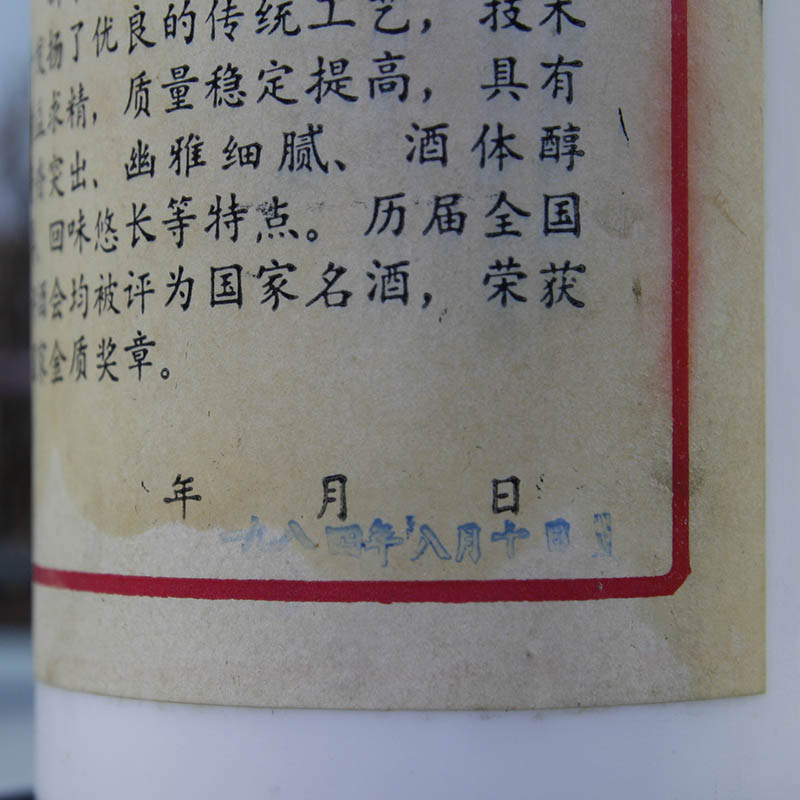 扬了优良的传统工艺，技术
求精，质量稳定提高，具有
突出、幽雅细腻、酒体醇
、回味悠长等特点。历届全国
酒会均被评为国家名酒，荣获
家金质奖章。
年 月 日
一九八四年八月十日